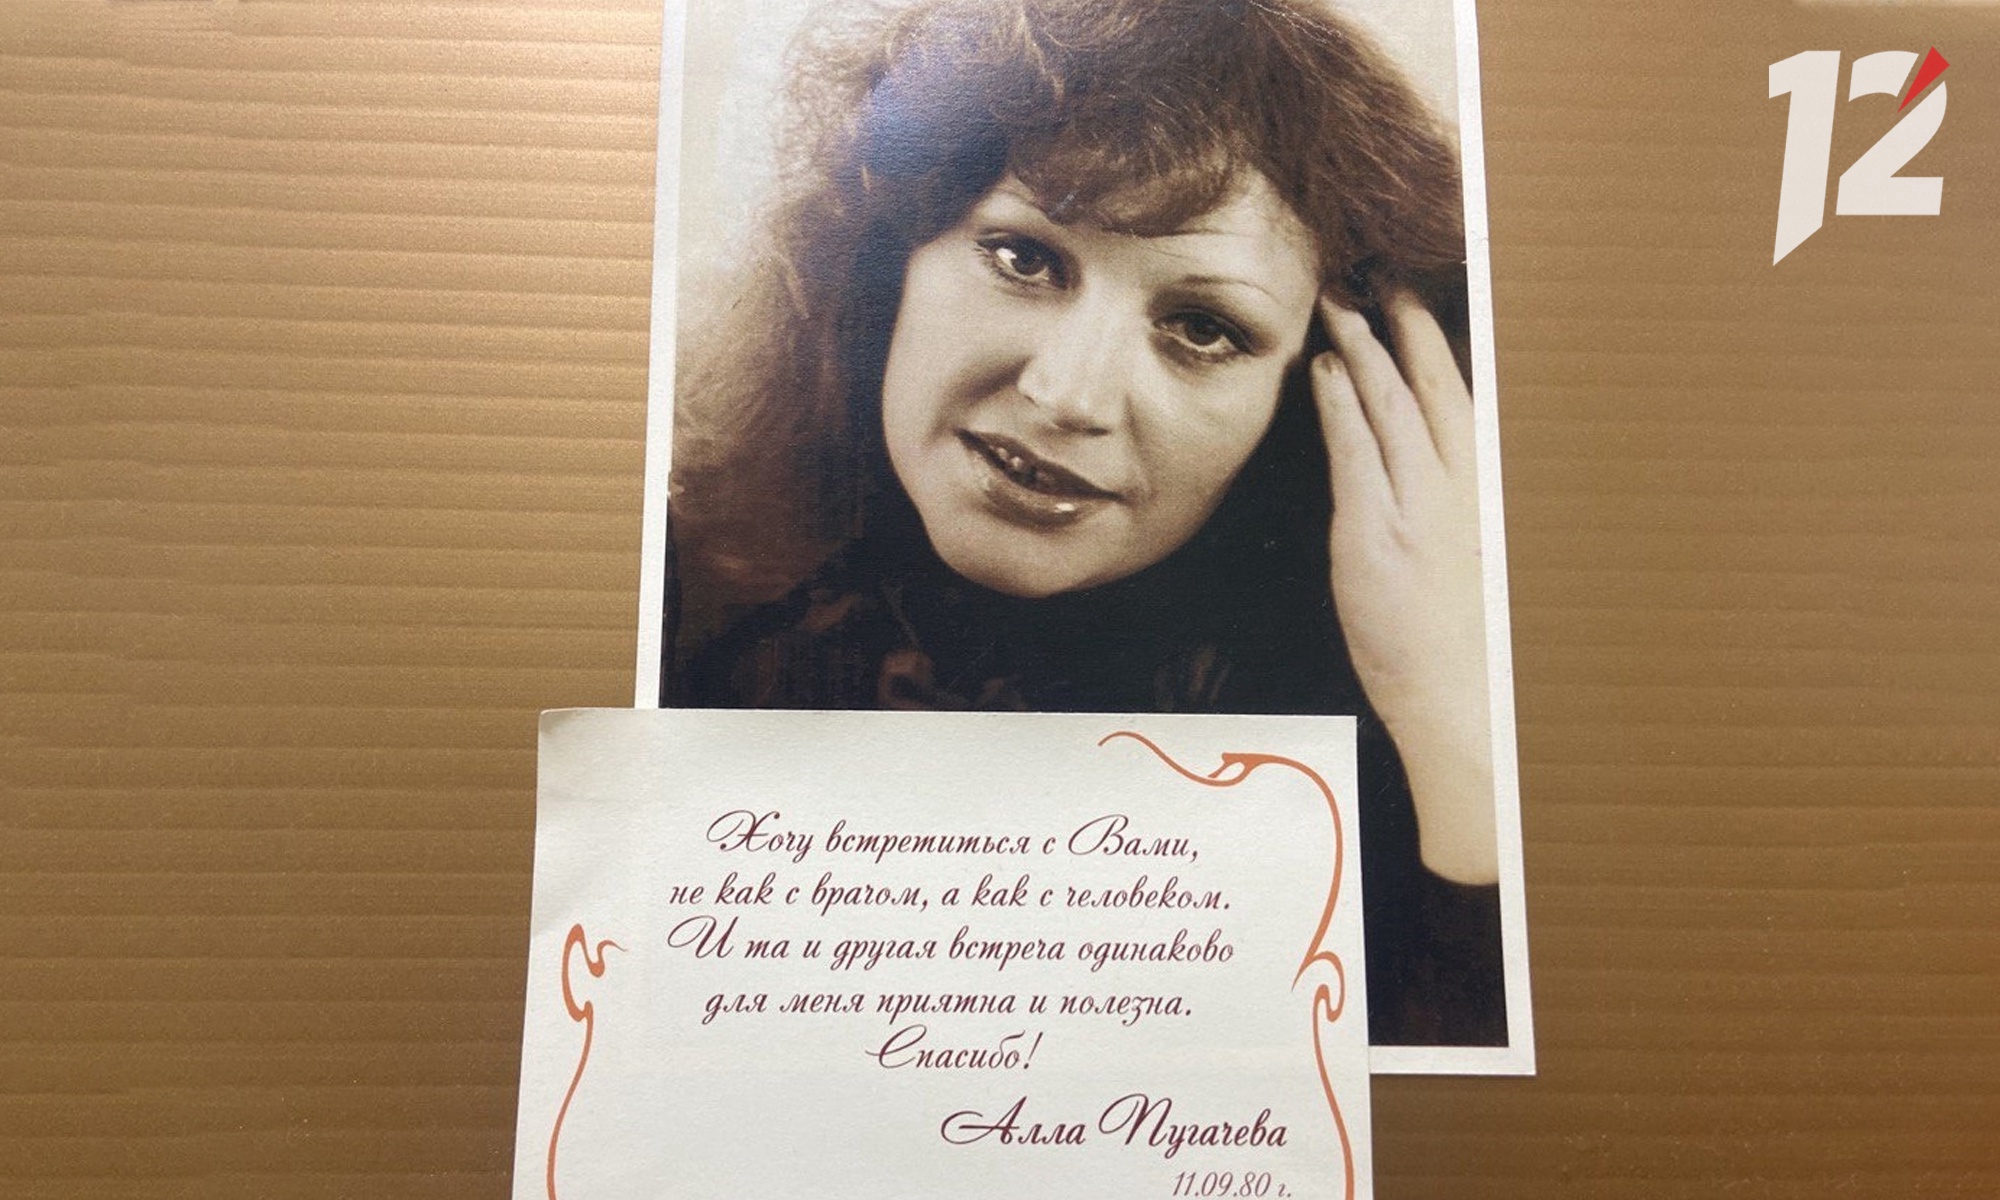 12
Хочу встретиться с Вами,
не как с врачом, а как с человеком.
И та и другая встреча одинаково
для меня приятна и полезна.
Спасибо!
Алла Пугачева
11.09.80 г.